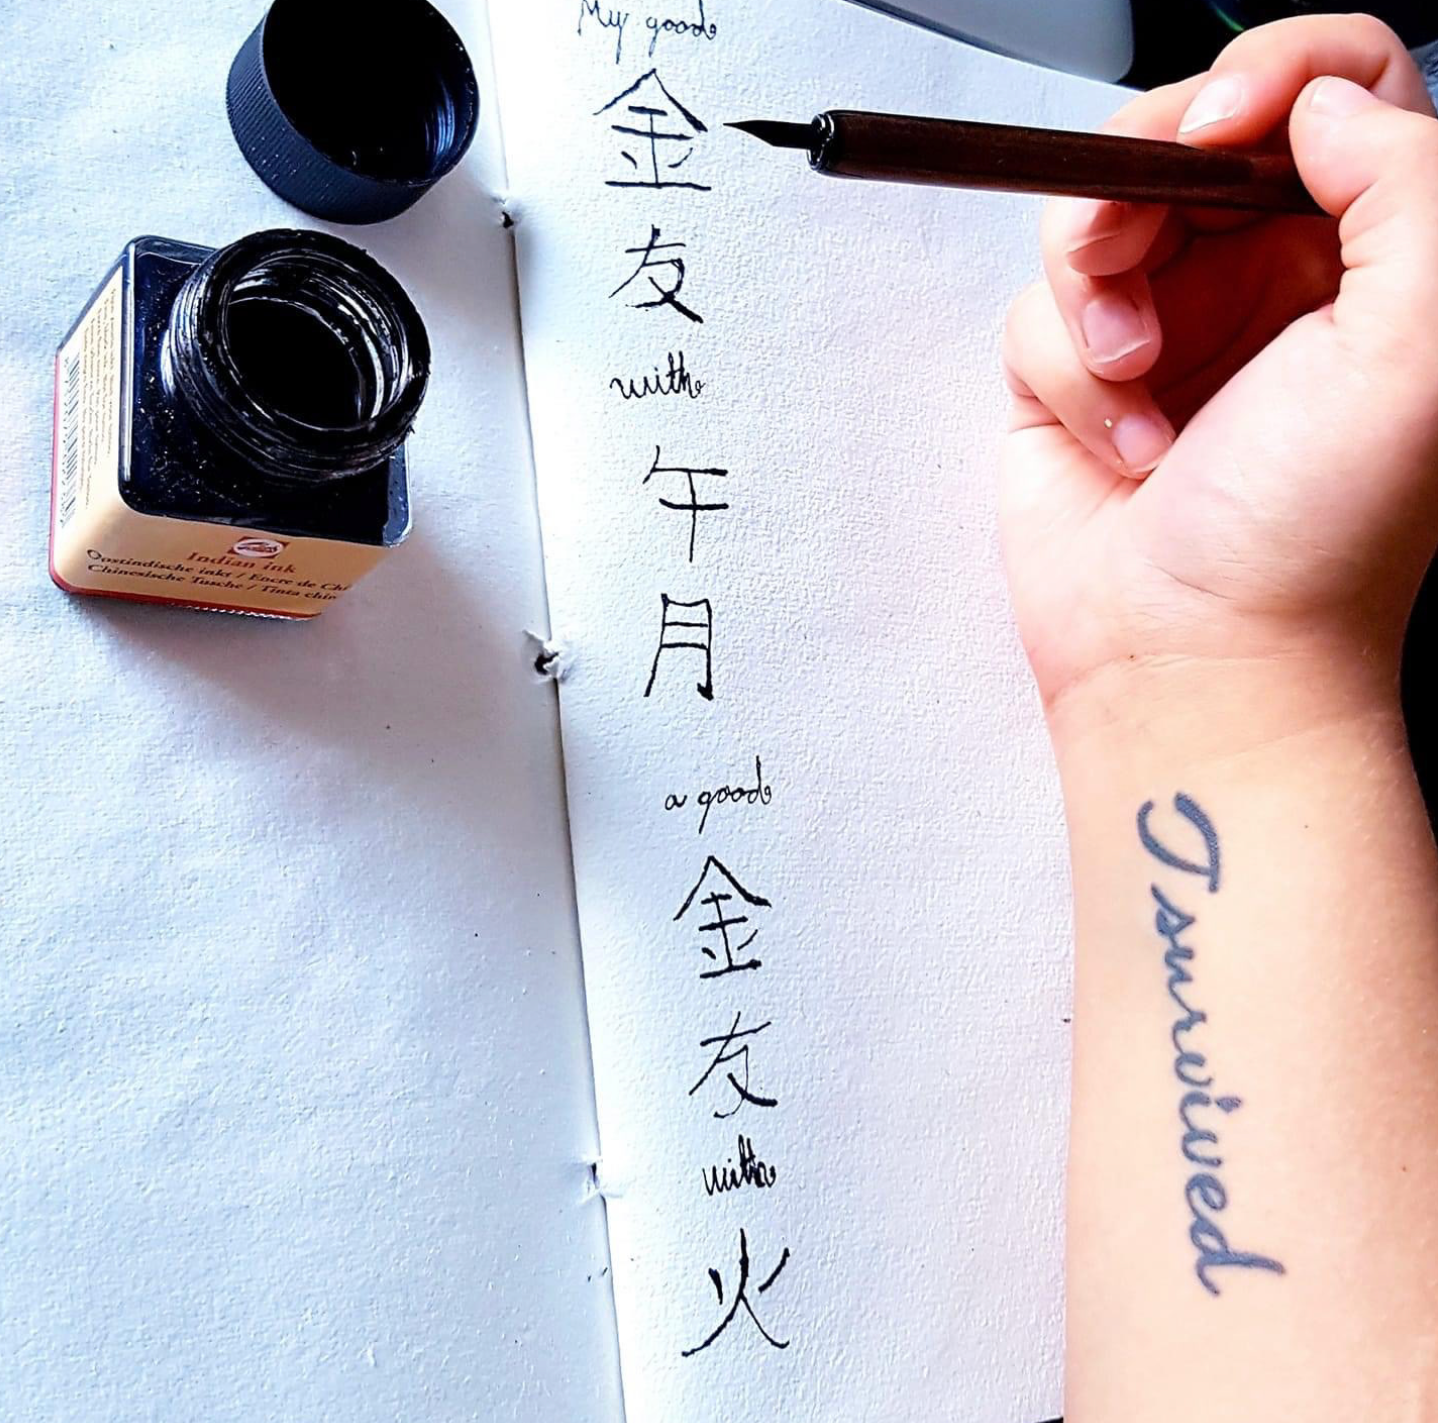 My good
金
友
with
午
月
a good
金
友
with
火
Indian ink
Oostindische inkt / Encre de Chi
Chinesische Tusche / Tinta chin
I survived